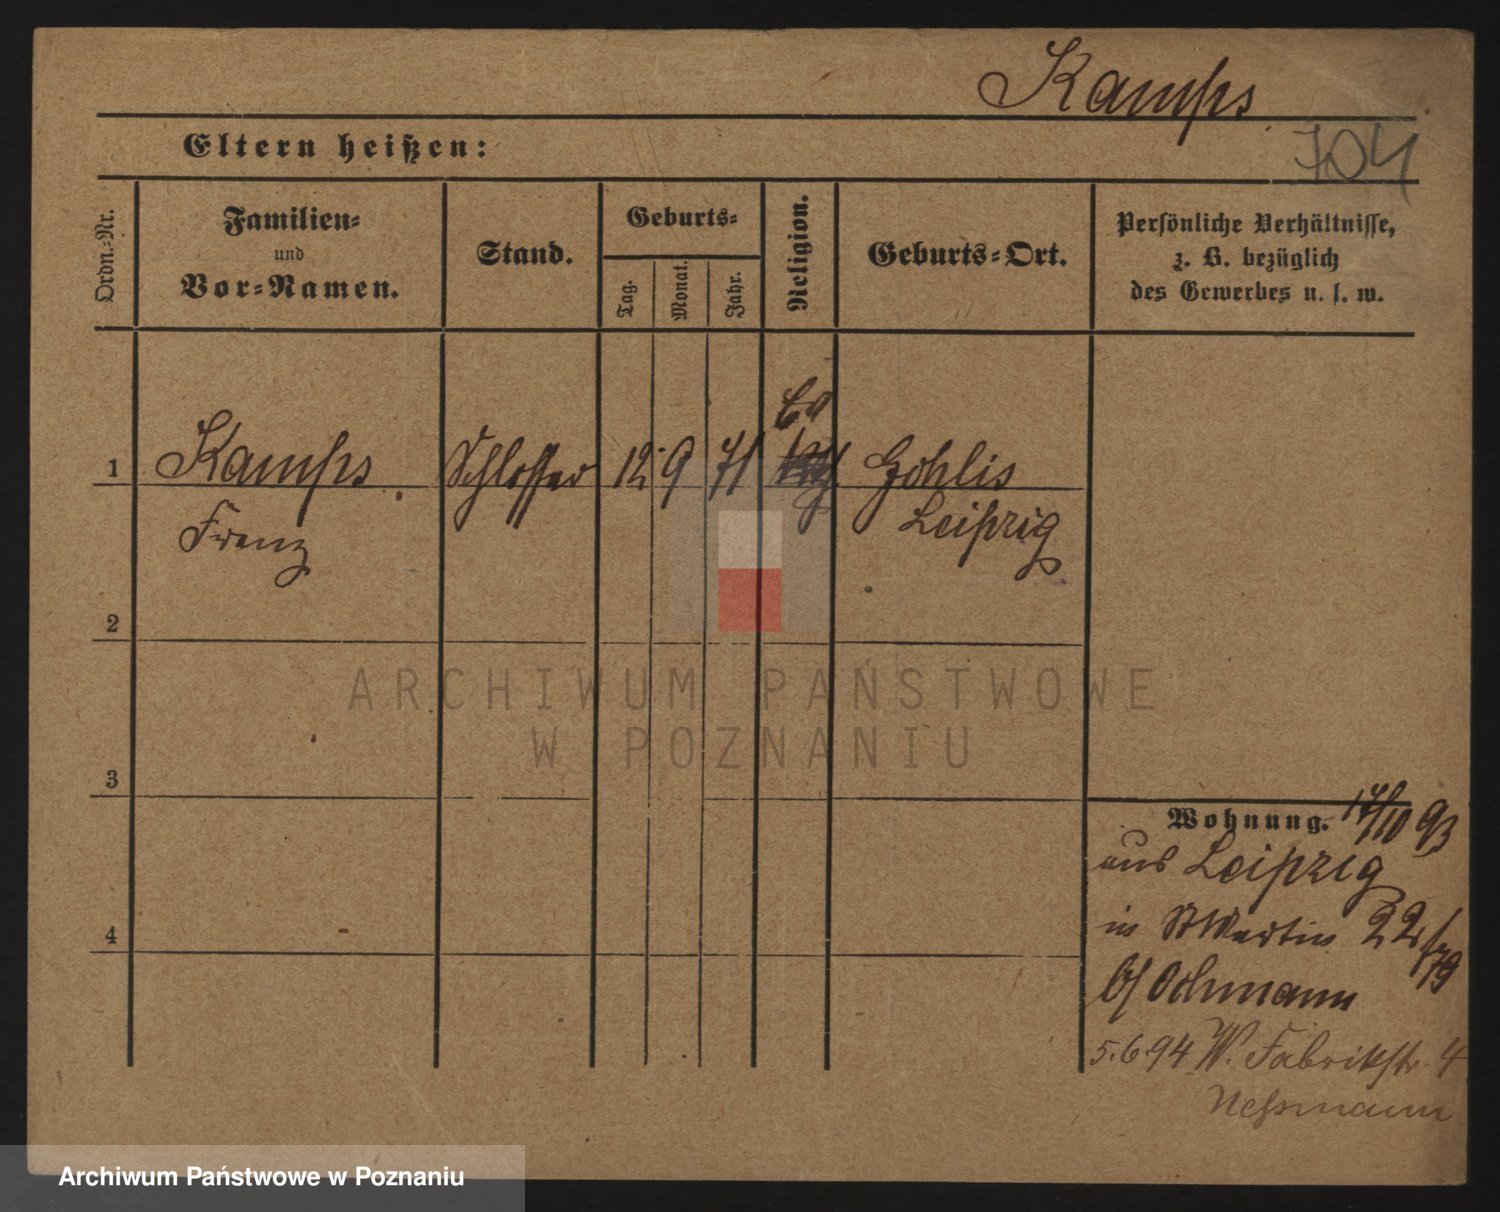 Kamps
704
Eltern heißen:
Ordn.-Nr.
Familien-
und
Vor-Namen.
Stand.
Geburts-
Tag.
Monat.
Jahr.
Religion.
Geburts-Ort.
Persönliche Verhältnisse,
z. B. bezüglich
des Gewerbes u. s. w.
Ev
1 Kamps Schlosser 12. 9 71 Gohlis
Franz Leipzig
2
ARCHIWUM PAŃSTWOWE
W POZNANIU
3
Wohnung. 17/10 93
aus Leipzig
in St Martin 22
b/ Ochmann
4
5.6.94 W. Fabrikstr. 4
Archiwum Państwowe w Poznaniu